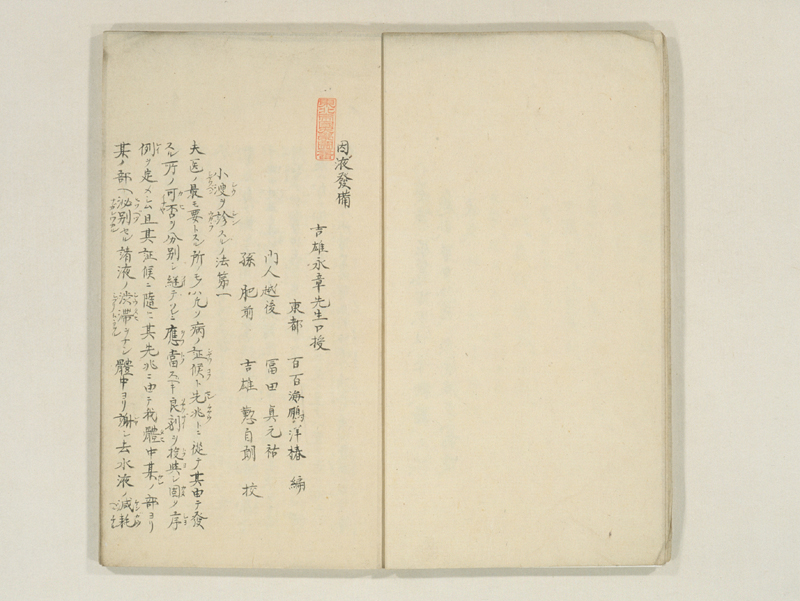 因液發備
吉雄永章先生口授
東都 百百海鵬洋椿 編
門人越後 冨田真元祐
孫 肥前 吉雄 自朝 校
小溲ヲ診スルノ法第一
夫医ノ最モ要トスル所ノモノハ凡ソ病ノ証候ト先兆トニ從テ其由テ發
スル所ノ可否ヲ分別シ継テソレニ應當スヘキ良剤ヲ投與シ固ク序
例ヲ定メシム且其証候ニ隨ヒ其先兆ニ由テ我體中某ノ部ヨリ
某ノ部ヘ泌別セル諸液ノ渋滞ヲナシ體中ヨリ謝シ去水液ノ減耗